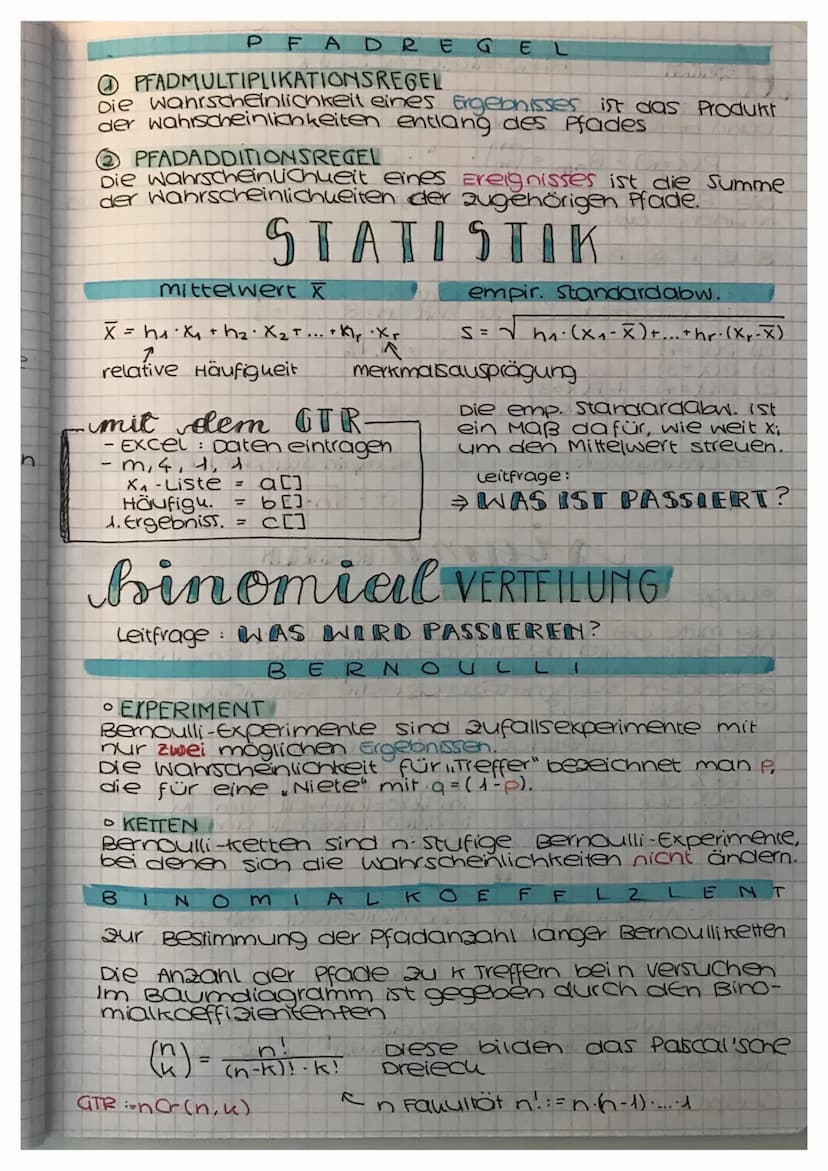 PFADREGEL
① PFADMULTIPLIKATIONSREGEL
Die Wahrscheinlichkeit eines Ergebnisses ist das Produkt
der Wahrscheinlichkeiten entlang des Pfades
② PFADADDITIONSREGEL
Die Wahrscheinlichkeit eines Ereignisses ist die Summe
der Wahrscheinlichkeiten der zugehörigen Pfade.
STATISTIK
mittelwert x̄
x̄ = h₁·x₁ + h₂·x₂ + ... + hᵣ·xᵣ
relative Häufigkeit
merkmalsausprägung
empir. Standardabw.
s = √h₁·(x₁-x̄)+...+hᵣ·(xᵣ-x̄)
mit dem GTR
- EXCEL : Daten eintragen
- m, 4, 1, 1
x₁-Liste = a[]
Häufigk. = b[]
1. Ergebniss. = c[]
Die emp. Standardabw. ist
ein Maß dafür, wie weit xᵢ
um den Mittelwert streuen.
Leitfrage:
⇒ WAS IST PASSIERT?
binomial VERTEILUNG
Leitfrage : WAS WIRD PASSIEREN?
BERNOULLI
◦ EXPERIMENT
Bernoulli-Experimente sind Zufallsexperimente mit
nur zwei möglichen Ergebnissen.
Die Wahrscheinlichkeit für „Treffer" bezeichnet man p,
die für eine „Niete" mit q=(1-p).
◦ KETTEN
Bernoulli-Ketten sind n-stufige Bernoulli-Experimente,
bei denen sich die Wahrscheinlichkeiten nicht ändern.
BINOMIALKOEFFIZIENT
Zur Bestimmung der Pfadanzahl langer Bernoulliketten
Die Anzahl der Pfade zu k Treffern bei n Versuchen
Im Baumdiagramm ist gegeben durch den Bino-
mialkoeffiziententen
(n k) = n! / (n-k)!·k!
Diese bilden das Pascal'sche
Dreieck
n Fakultät n! := n·(n-1)·...·1